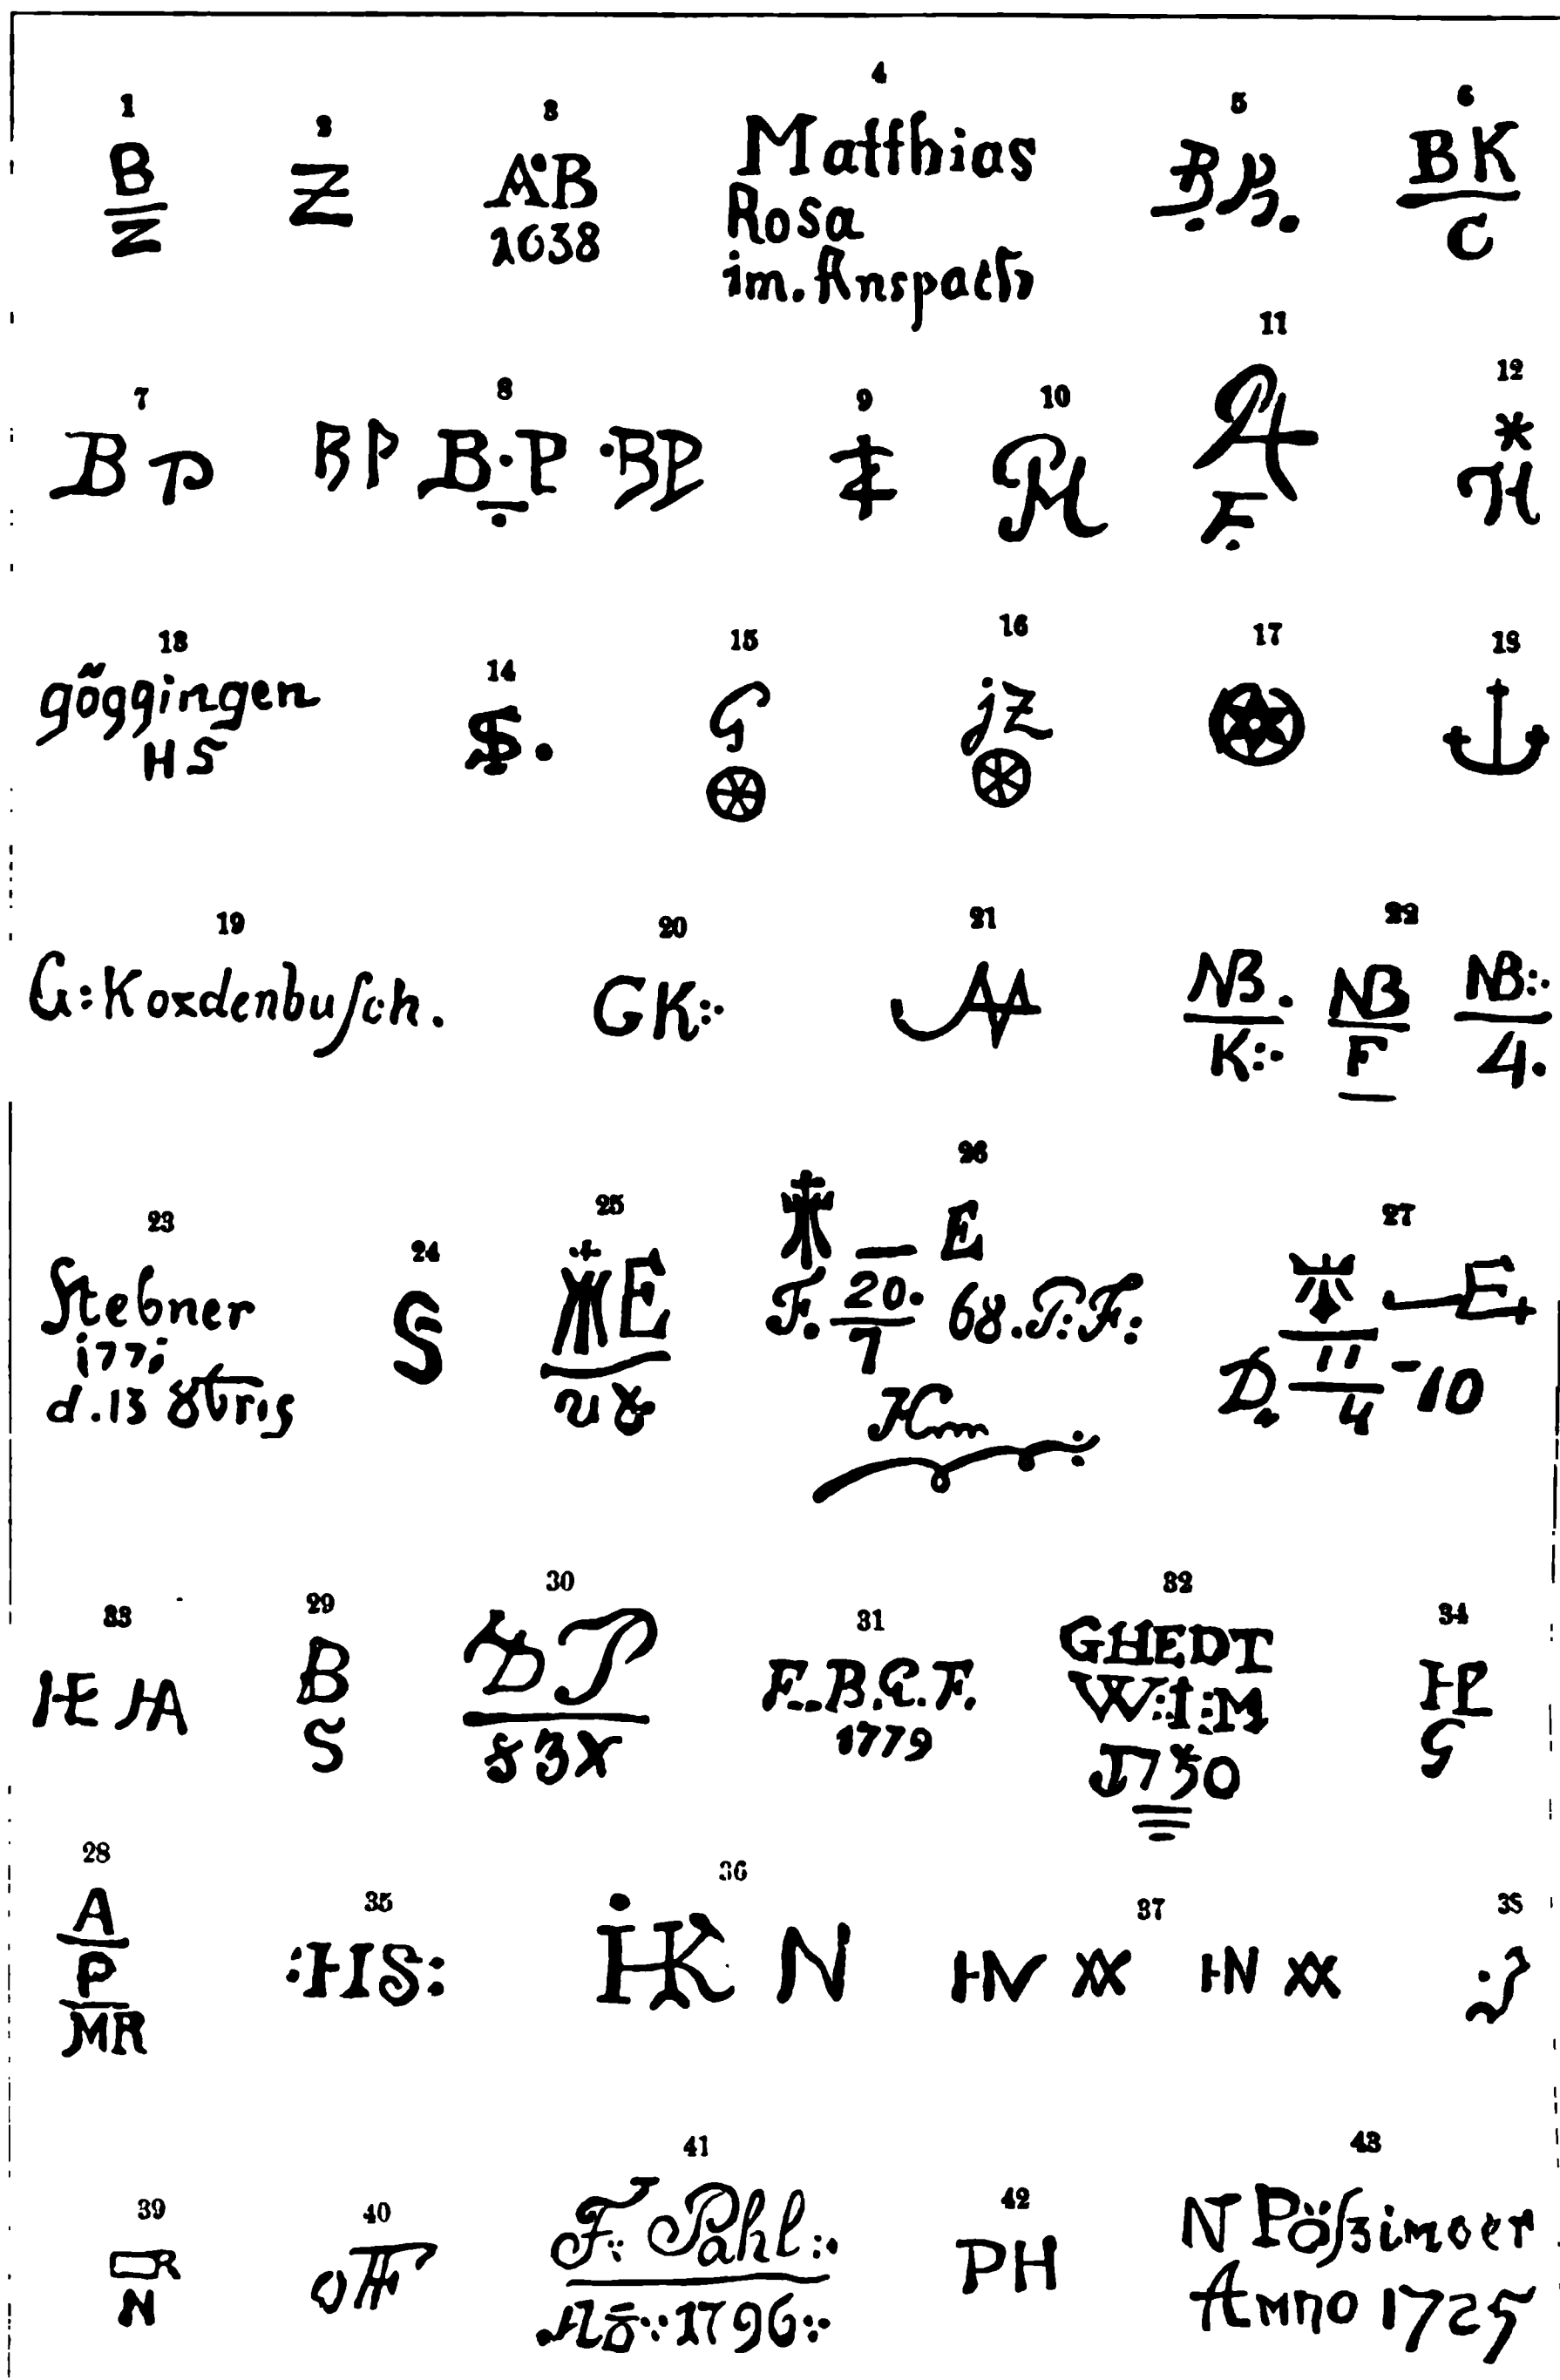 1
B
Z
2
Z
3
A•B
1638
4
Matthias
Rosa
im. Anspach
5
B P.
6
BK
C
7
B P
8
BP B·P ·BP
9
10
PM
11
PA
F
12
*
H
13
göggingen
HS
14
S.
15
G
16
jZ
17
18
19
G:Kordenbuſch.
20
GK:·
21
22
NB.
K:·
NB
F
NB:·
4.
23
Stebner
1771
d.13 8bris
24
S
25
E
26
E
F. 20. 68. P: F:
7
Hm
27
E
D. 11 - 10
4
33
HE HA
29
B
S
30
P
83X
31
F.B.C.F.
1779
32
GHEDT
W:I:M
J730
34
HP
G
28
A
P
MR
35
:HS:
36
HK N
37
HN XX HN XX
38
·J
39
R
N
40
41
F: Pahl:·
Aō:·1796:·
42
PH
43
N Pößinger
Anno 1725